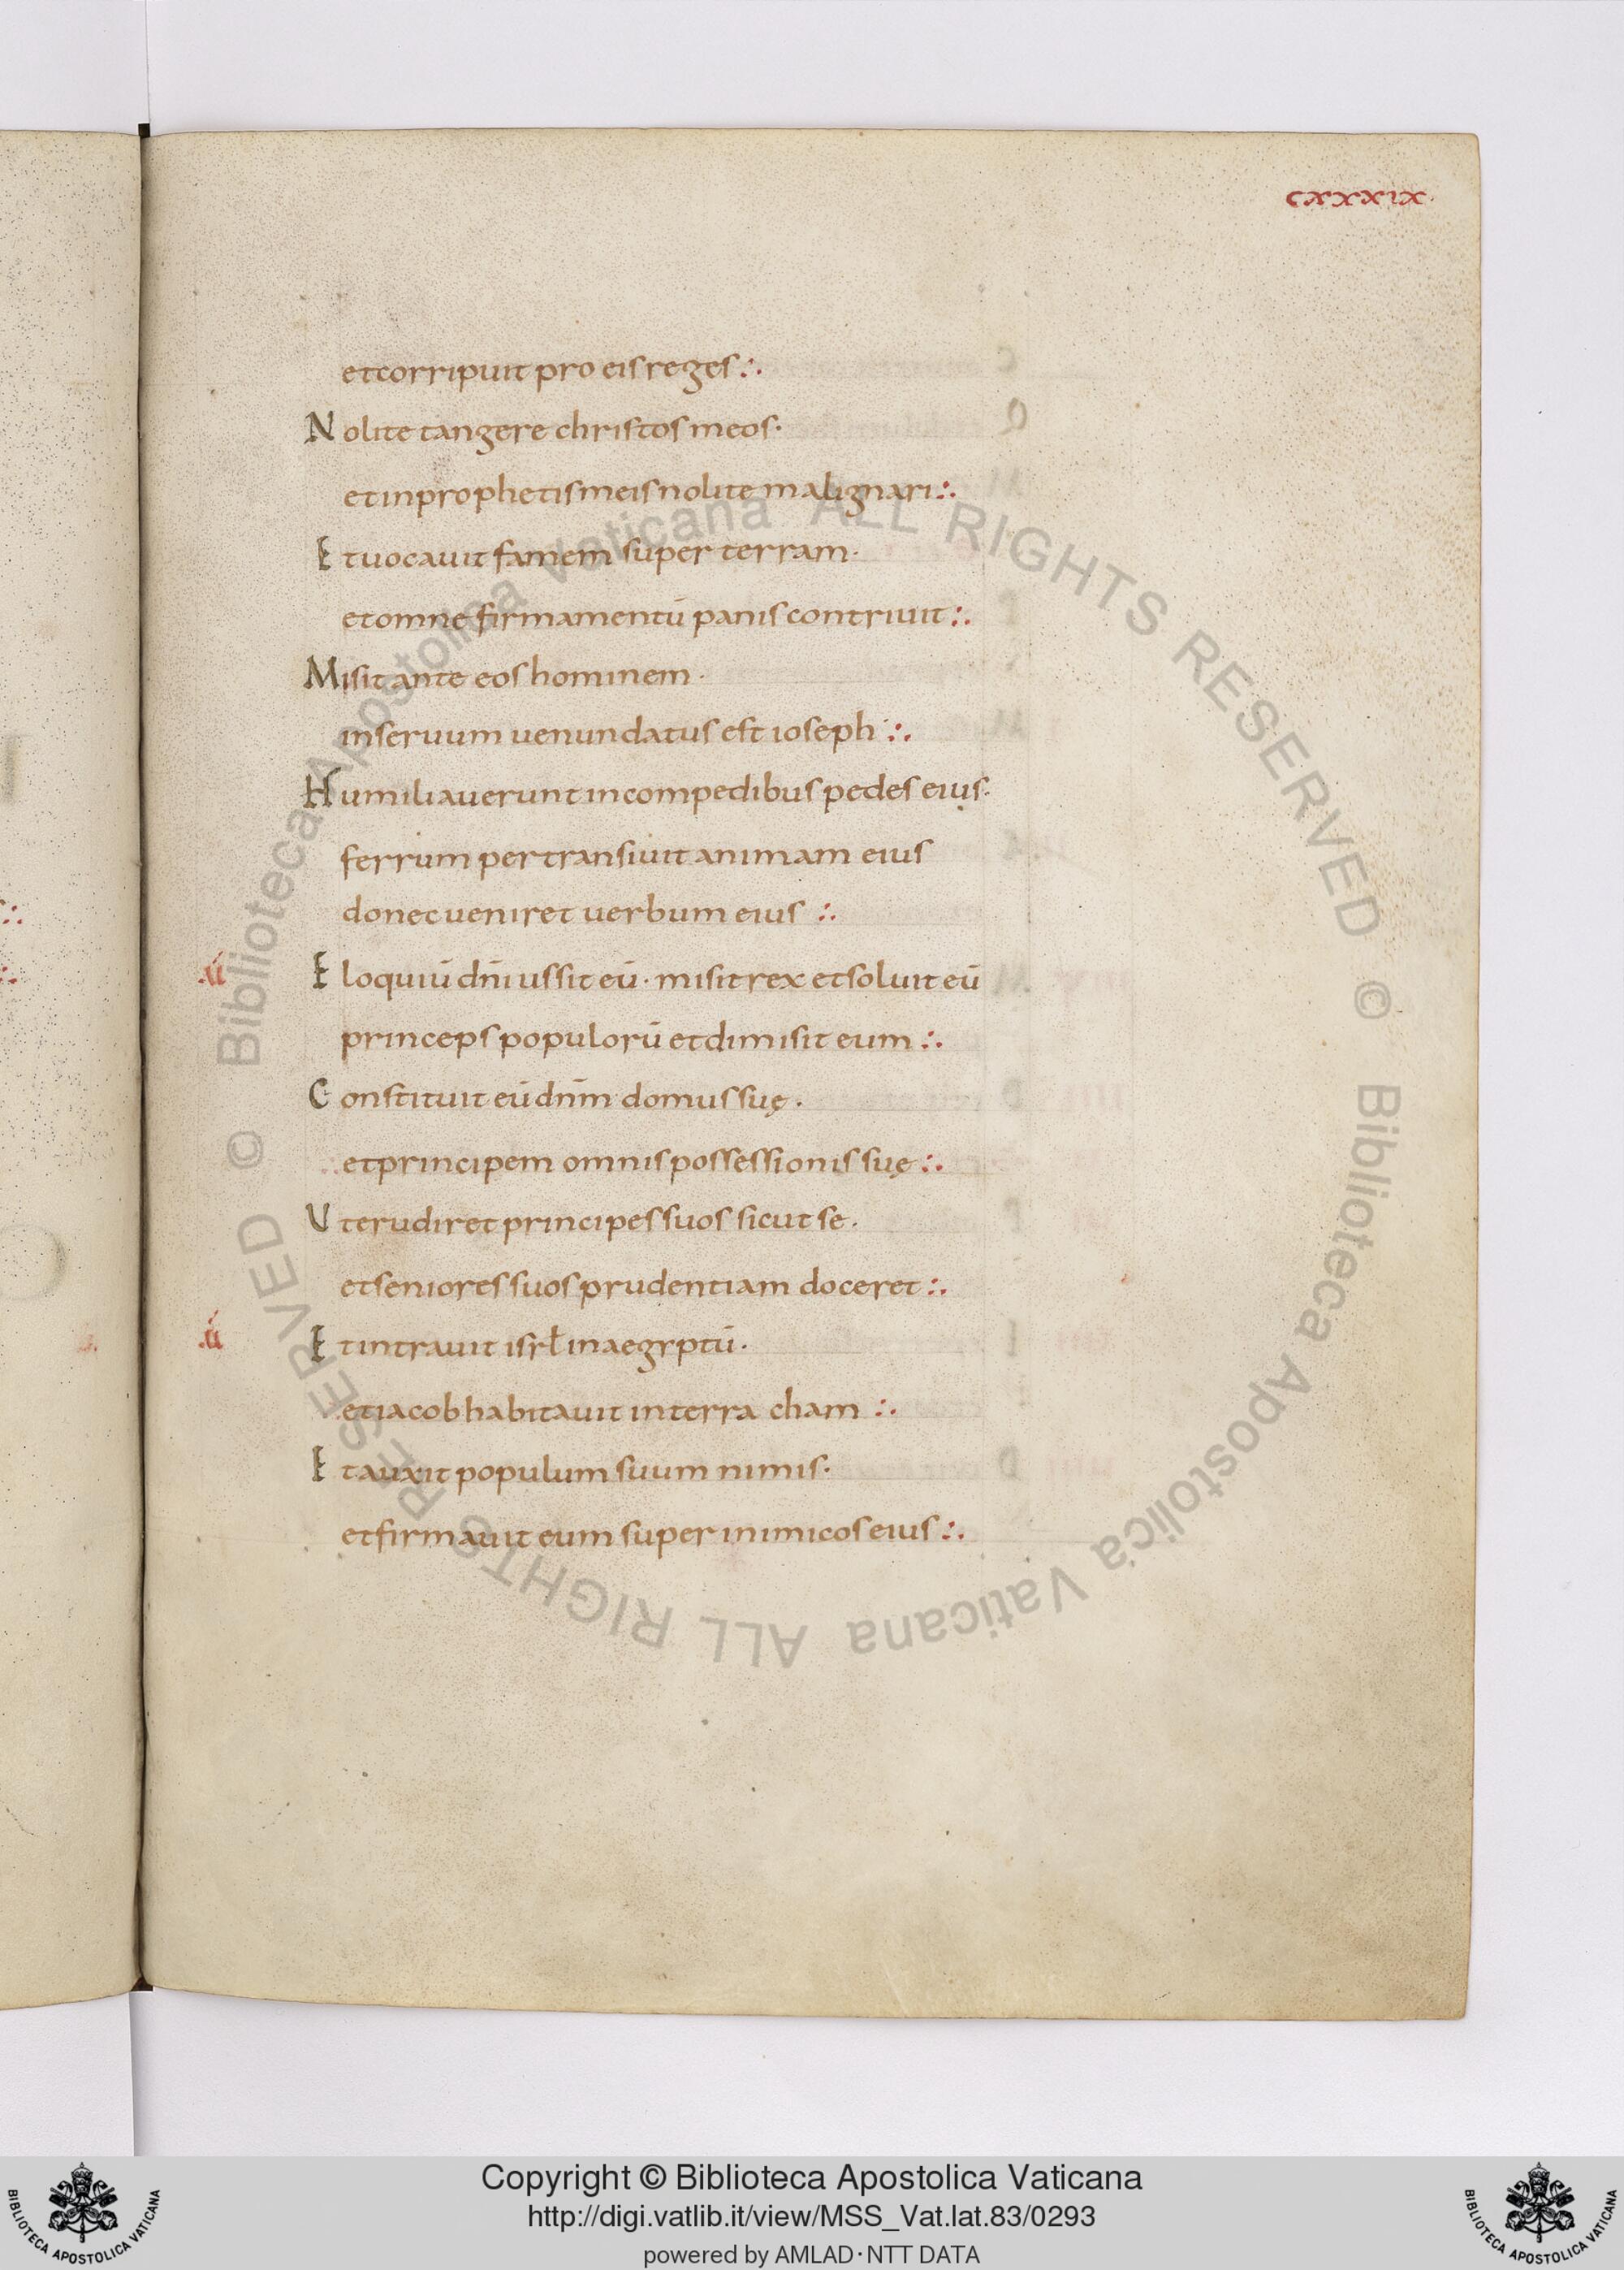 cxxxix.
et corripuit pro eis reges:.
Nolite tangere christos meos.
et in prophetis meis nolite malignari:.
Et uocauit famem super terram.
et omne firmamentū panis contriuit:.
Misit ante eos hominem.
in seruum uenundatus est ioseph:.
Humiliauerunt in compedibus pedes eius.
ferrum pertransiuit animam eius
donec ueniret uerbum eius:.
.ú Eloquiū dn̄i ussit eū. misit rex et soluit eū
princeps populorū et dimisit eum:.
Constituit eū dn̄m domus suę.
et principem omnis possessionis suę:.
Ut erudiret principes suos sicut se.
et seniores suos prudentiam doceret:.
.ú Et intrauit isrł in aegyptū.
et iacob habitauit in terra cham:.
Et auxit populum suum nimis.
et firmauit eum super inimicos eius:.
© Biblioteca Apostolica Vaticana ALL RIGHTS RESERVED © Biblioteca Apostolica Vaticana ALL RIGHTS RESERVED
Copyright © Biblioteca Apostolica Vaticana
http://digi.vatlib.it/view/MSS_Vat.lat.83/0293
powered by AMLAD·NTT DATA
BIBLIOTECA APOSTOLICA VATICANA
BIBLIOTECA APOSTOLICA VATICANA